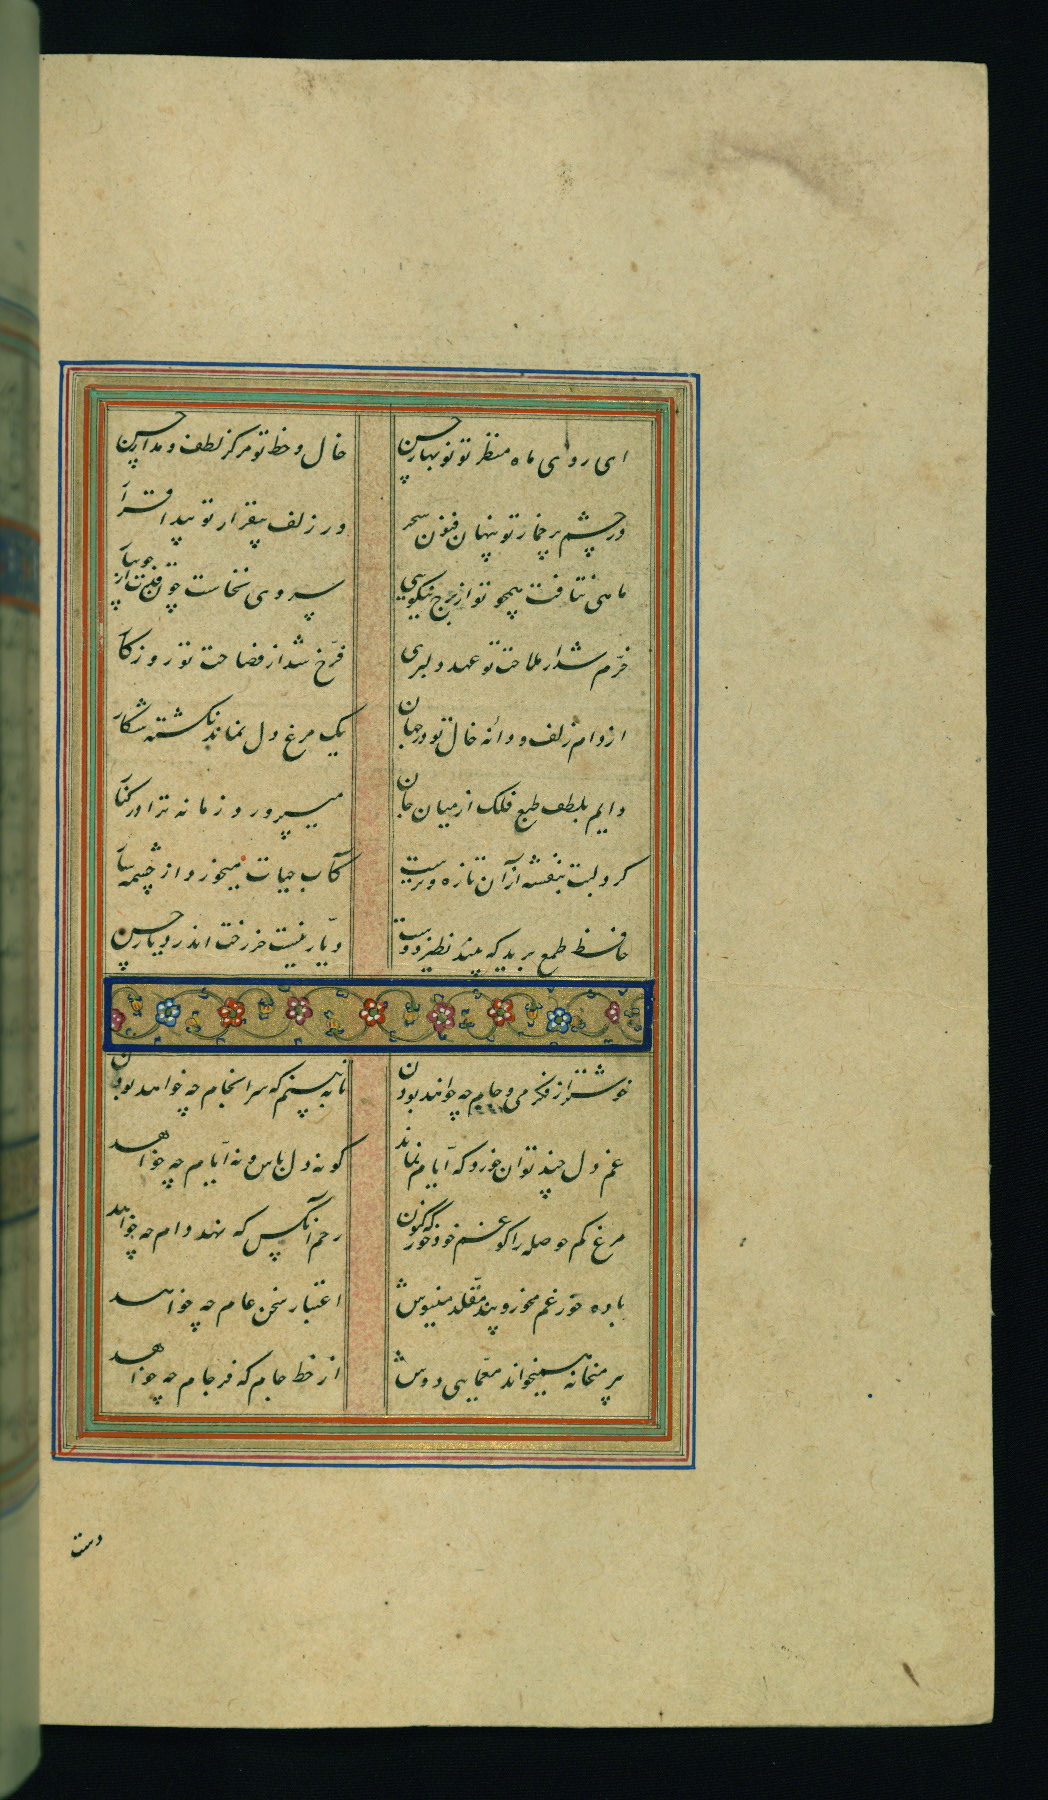 ای روی ماه منظر تو نوبهار حسن
خال و خط تو مرکز لطف و مدار حسن
در چشم پر خمار تو پنهان فنون سحر
در زلف بیقرار تو پیدا قرار
ماهی نتافت همچو تو از برج نیکویی
سروی نخاست چون قدت از جویبار
خرم شد از ملاحت تو عهد دلبری
فرخ شد از فصاحت تو روزکار
از دام زلف و دانه خال تو در جهان
یک مرغ دل نماند نکشته شکار
دایم بلطف طبع فلک از میان جان
میپرورد زمانه ترا در کنار
کرد لبت بنفشه از آن تازه و ترست
کآب حیات میخورد از چشمه سار
حافظ طمع برید که بیند نظیر دوست
دیار نیست جز رخت اندر دیار حسن
خوشتر از فکر می و جام چه خواهد بودن
تا به بینم که سرانجام چه خواهد بودن
غم دل چند توان خورد که ایام نماند
کو نه دل باش و نه ایام چه خواهد
مرغ کم حوصله را کو غم خود خور که کنون
رحم آنکس که نهد دام چه خواهد
باده خور غم مخور و پند مقلد منیوش
اعتبار سخن عام چه خواهد
پیر میخانه همیخواند معمایی دوش
از خط جام که فرجام چه خواهد
دست